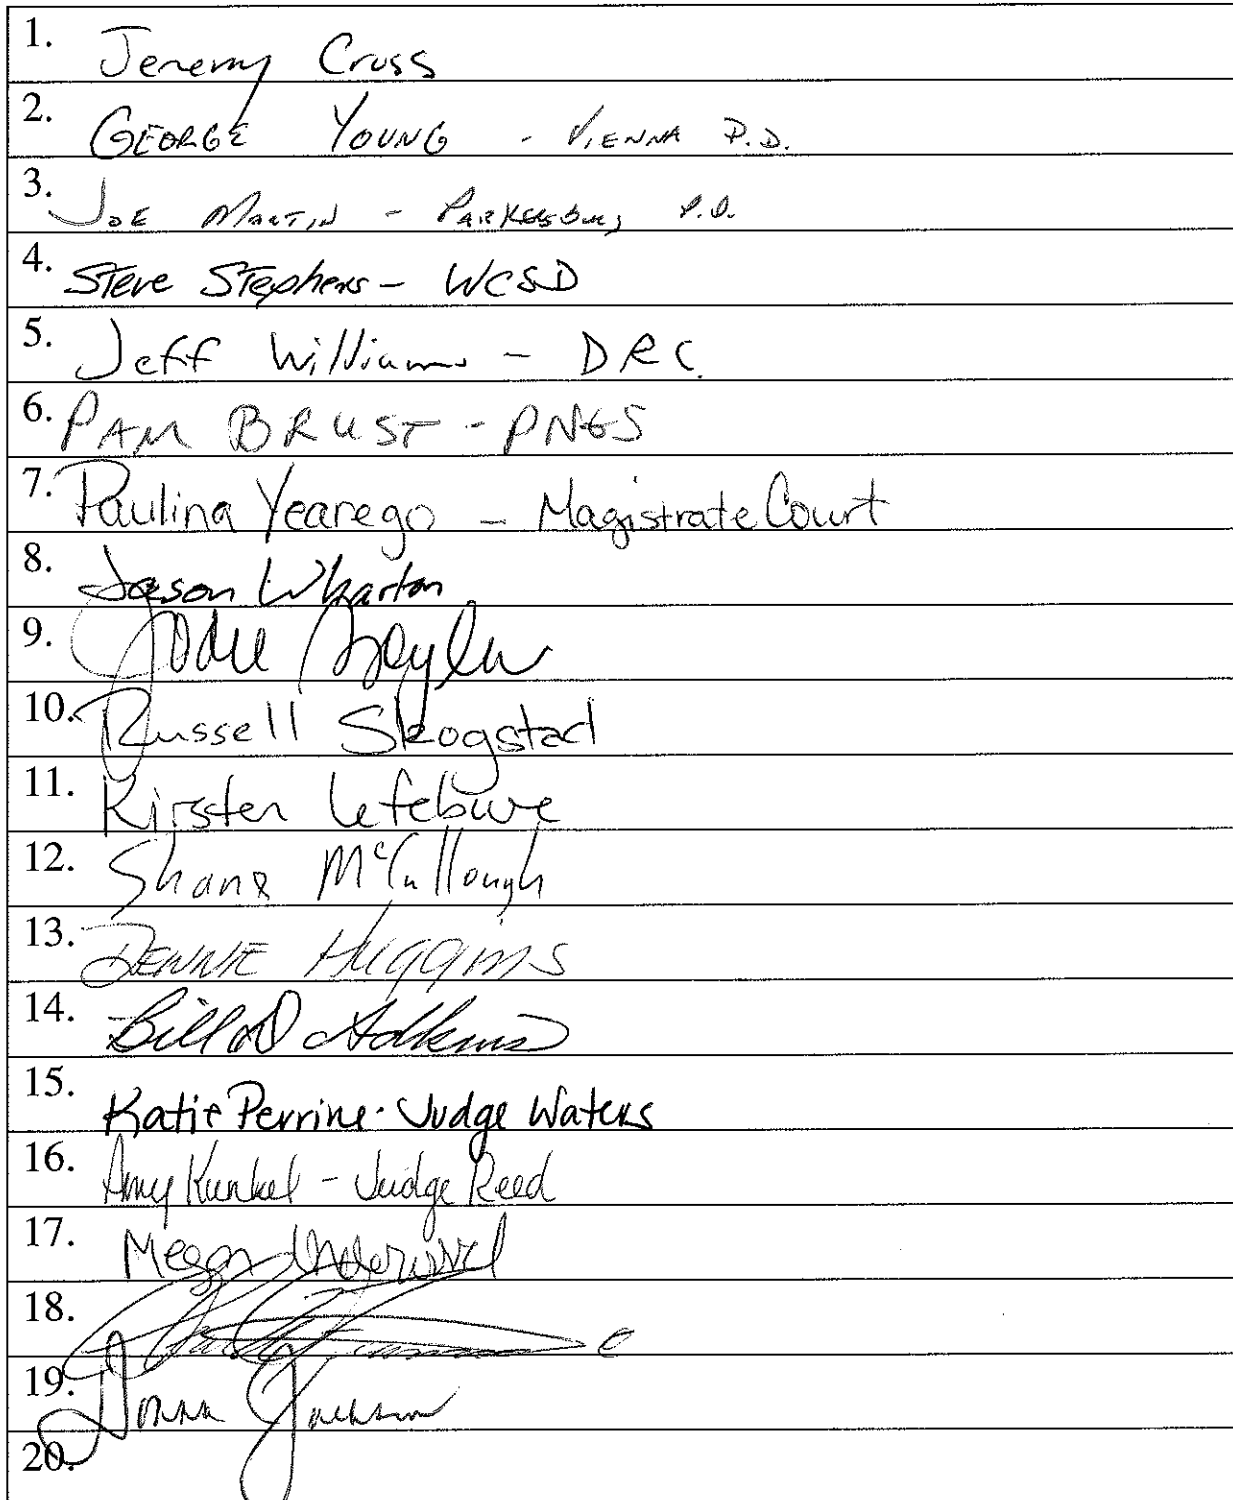 1. Jeremy Cross
2. GEORGE YOUNG - VIENNA P.D.
3. JOE MARTIN - PARKERSBURG P.D.
4. Steve Stephens - WCSD
5. Jeff Williams - DRC
6. PAM BRUST - PNGS
7. Paulina Yearego - Magistrate Court
8. Jason Wharton
9. Jodie
10. Russell Skogstad
11. Kirsten Lefebure
12. Shane McCullough
13. DENNIE HUGGINS
14. Bill D Adkins
15. Katie Perrine - Judge Waters
16. Amy Kunkel - Judge Reed
17. Megan Underwood
18.
19. Donna Jackson
20.